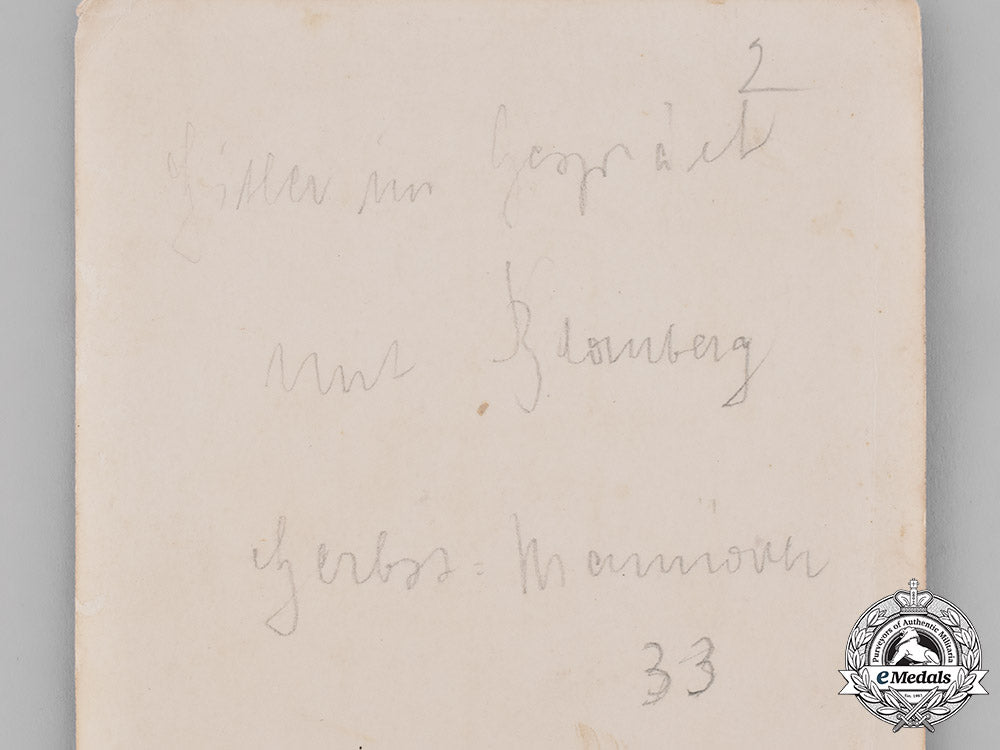 2
Hitler im Gespräch
mit Blomberg
Herbst-Mannöver
33
Purveyors of Authentic Militaria
eMedals
Est. 1967